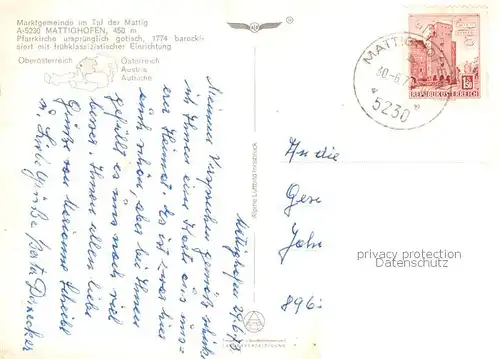 Marktgemeinde im Tal der Mattig
A-5230 MATTIGHOFEN, 450 m
Pfarrkirche ursprünglich gotisch, 1774 barocki-
siert mit frühklassizistischer Einrichtung
Oberösterreich
Österreich
Austria
Autriche
Alpine Luftbild Innsbruck
MATTIGH
5230
REPUBLIK ÖSTERREICH
Mattighofen
Meinem Versprechen gemäß schicke
ich Ihnen eine Karte aus uns-
erer Heimat. Es ist zwar hier
auch schön, aber bei Ihnen
gefällt es uns noch viel
besser. Ihnen allen liebe
Grüße von Marianne
u. Liebe Grüße Berta
An die
Gese
Joh
896
privacy protection
Datenschutz